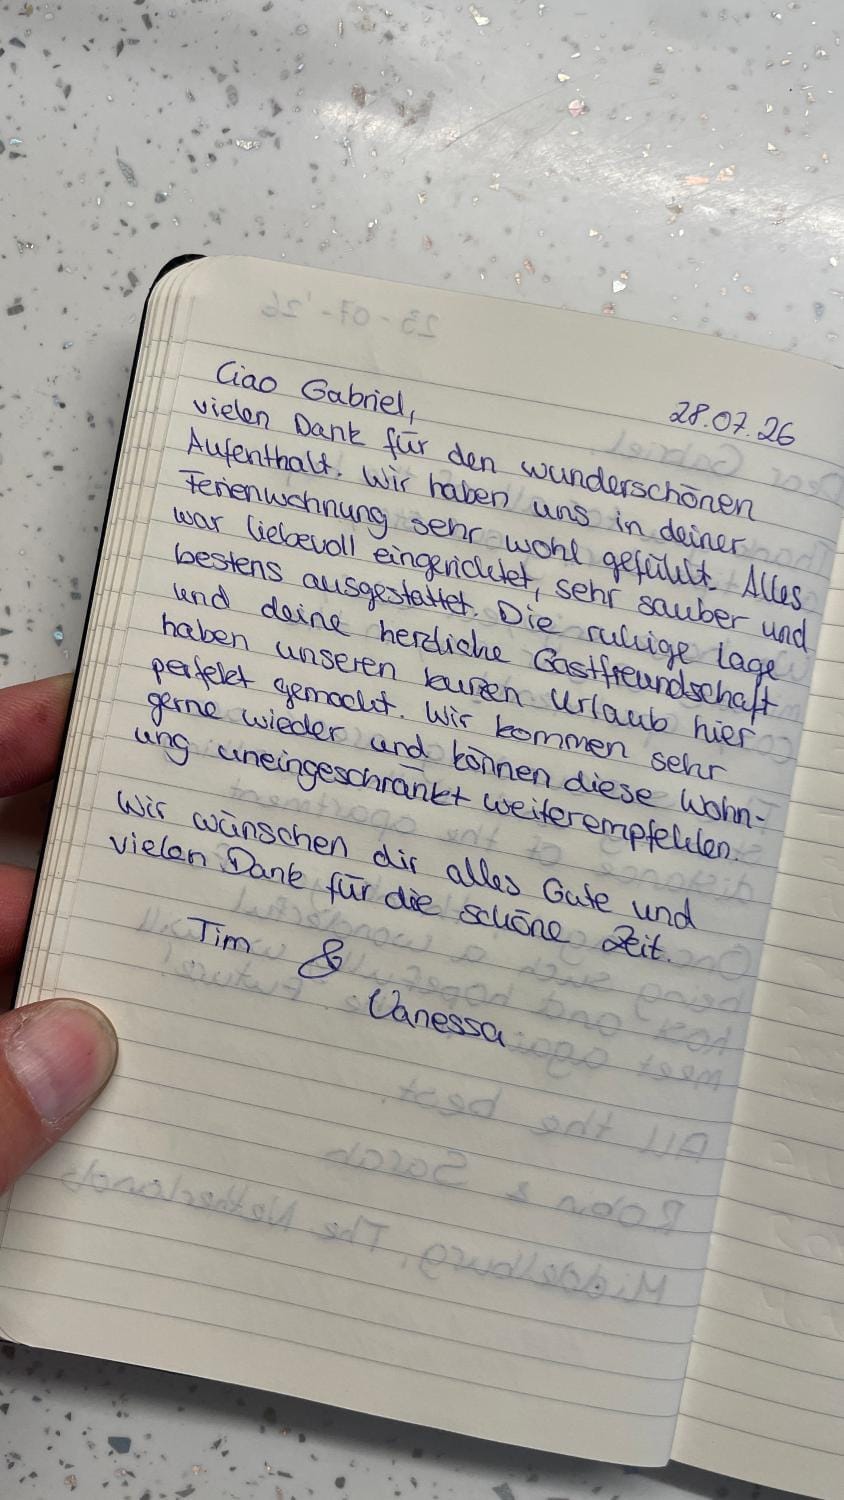 23-07-'26
Ciao Gabriel,
28.07.26
vielen Dank für den wunderschönen
Aufenthalt. Wir haben uns in deiner
Ferienwohnung sehr wohl gefühlt. Alles
war liebevoll eingerichtet, sehr sauber und
bestens ausgestattet. Die ruhige Lage
und deine herzliche Gastfreundschaft
haben unseren kurzen Urlaub hier
perfekt gemacht. Wir kommen sehr
gerne wieder und können diese Wohn-
ung uneingeschränkt weiterempfehlen.
Wir wünschen dir alles Gute und
vielen Dank für die schöne Zeit.
Tim &
Vanessa
All the best.
Robin & Sarah
Middelburg, The Netherlands